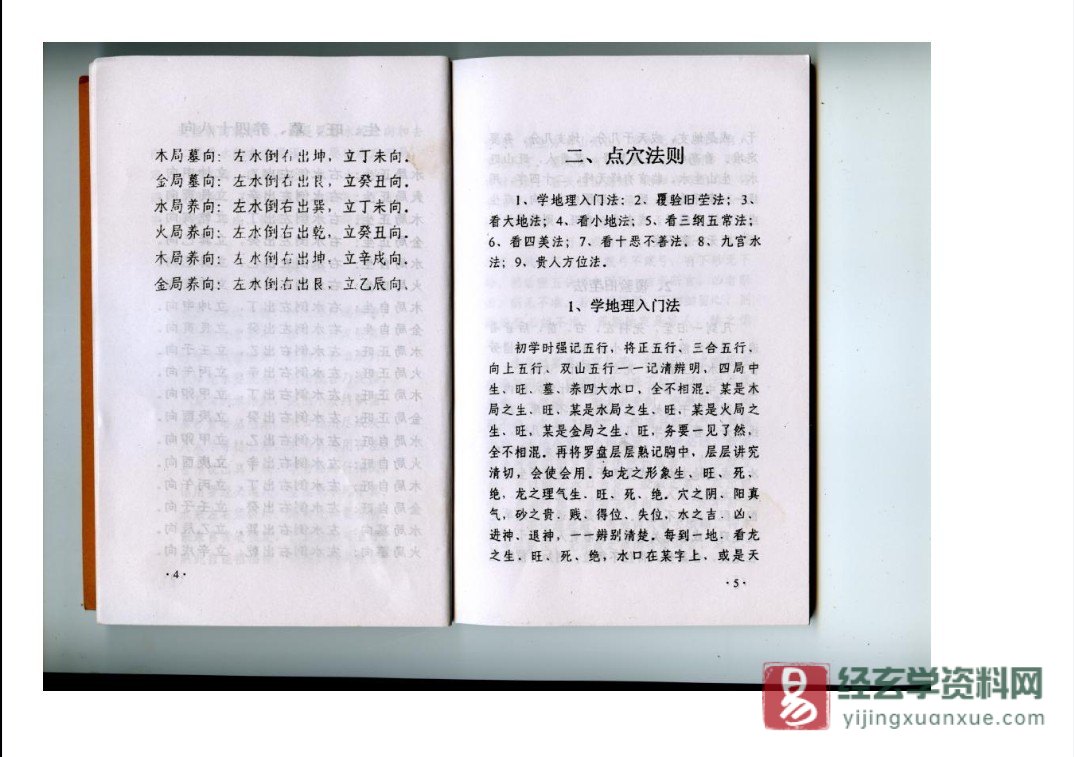 木局墓向：左水倒右出坤，立丁未向。
金局墓向：左水倒右出艮，立癸丑向。
水局养向：左水倒右出巽，立丁未向。
火局养向：左水倒右出乾，立癸丑向。
木局养向：左水倒右出坤，立辛戌向。
金局养向：左水倒右出艮，立乙辰向。
·4·
二、点穴法则
1、学地理入门法；2、覆验旧茔法；3、
看大地法；4、看小地法；5、看三纲五常法；
6、看四美法；7、看十恶不善法；8、九宫水
法；9、贵人方位法。
1、学地理入门法
初学时强记五行，将正五行、三合五行、
向上五行、双山五行一一记清辨明，四局中
生、旺、墓、养四大水口，全不相混。某是木
局之生、旺，某是水局之生、旺，某是火局之
生、旺，某是金局之生、旺，务要一见了然，
全不相混。再将罗盘层层熟记胸中，层层讲究
清切，会使会用。知龙之形象生、旺、死、
绝，龙之理气生、旺、死、绝。穴之阴、阳真
气，砂之贵、贱、得位、失位，水之吉、凶、
进神、退神，一一辨别清楚。每到一地，看龙
之生、旺、死、绝，水口在某字上，或是天
·5·
易
经玄学资料网
yijingxuanxue.com